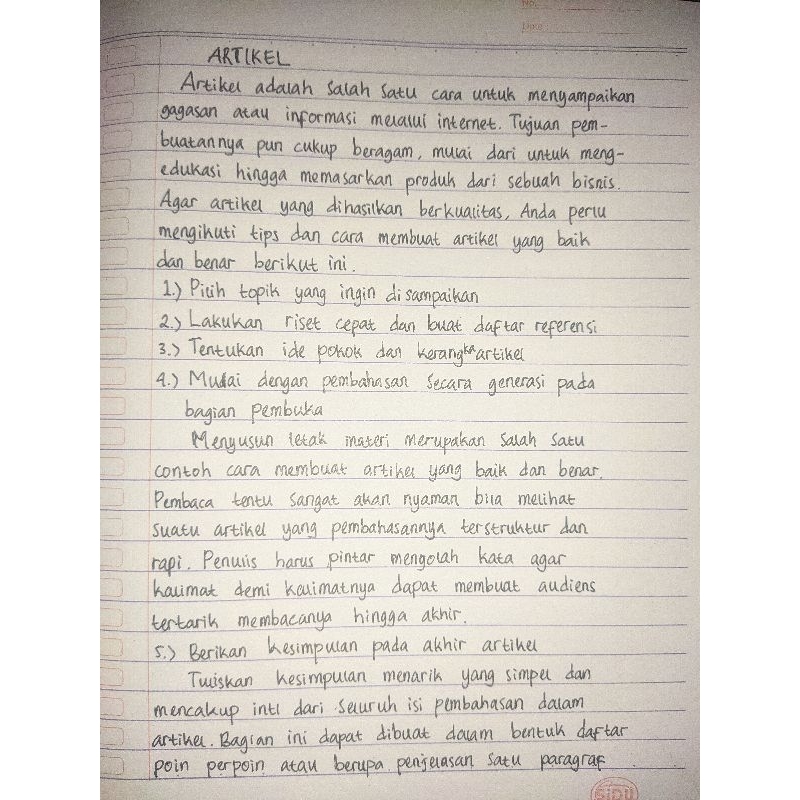 No.
Date
ARTIKEL
Artikel adalah salah satu cara untuk menyampaikan
gagasan atau informasi melalui internet. Tujuan pem-
buatannya pun cukup beragam, mulai dari untuk meng-
edukasi hingga memasarkan produk dari sebuah bisnis.
Agar artikel yang dihasilkan berkualitas, Anda perlu
mengikuti tips dan cara membuat artikel yang baik
dan benar berikut ini.
1.) Pilih topik yang ingin disampaikan
2.) Lakukan riset cepat dan buat daftar referensi
3.) Tentukan ide pokok dan kerangka artikel
4.) Mulai dengan pembahasan secara generasi pada
bagian pembuka
Menyusun letak materi merupakan salah satu
contoh cara membuat artikel yang baik dan benar.
Pembaca tentu sangat akan nyaman bila melihat
suatu artikel yang pembahasannya terstruktur dan
rapi. Penulis harus pintar mengolah kata agar
kalimat demi kalimatnya dapat membuat audiens
tertarik membacanya hingga akhir.
5.) Berikan kesimpulan pada akhir artikel
Tuliskan kesimpulan menarik yang simpel dan
mencakup inti dari seluruh isi pembahasan dalam
artikel. Bagian ini dapat dibuat dalam bentuk daftar
poin perpoin atau berupa penjelasan satu paragraf
SiDU